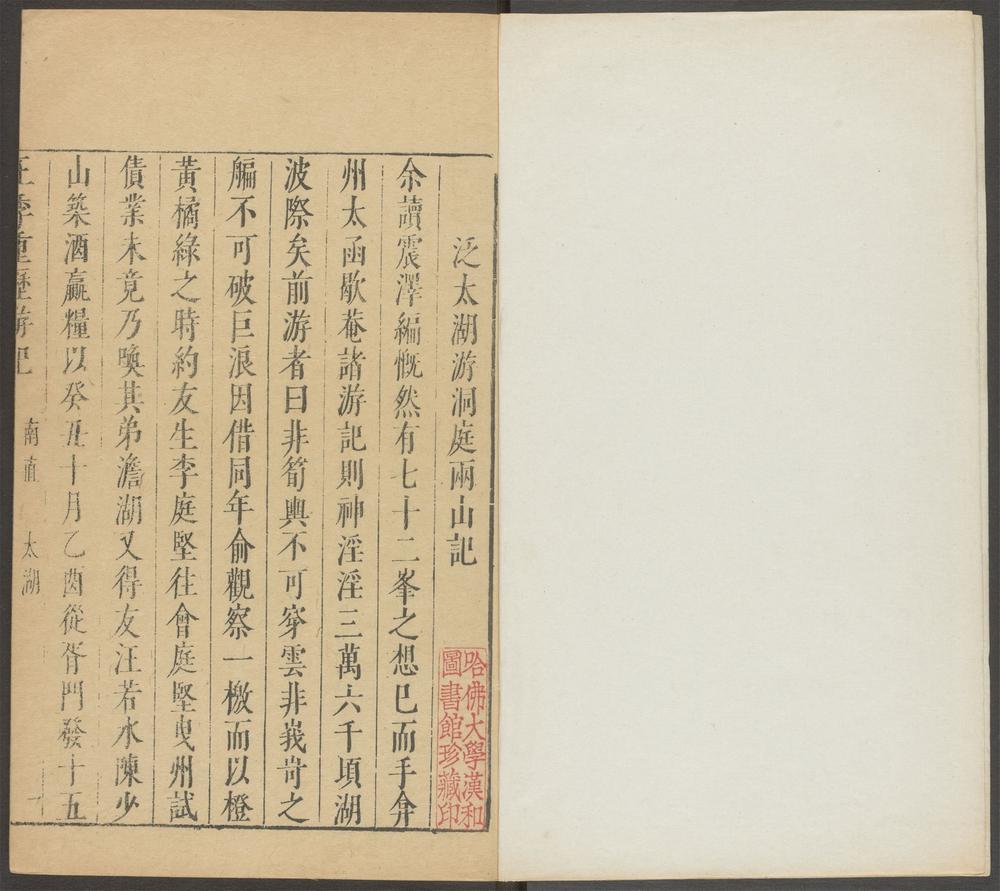 泛太湖游洞庭兩山記
余讀震澤編慨然有七十二峯之想已而手弇
州太函歇菴諸游記則神淫淫三萬六千頃湖
波際矣前游者曰非筍輿不可穿雲非峩岢之
艑不可破巨浪因借同年俞觀察一檄而以橙
黃橘綠之時約友生李庭堅往會庭堅曳州試
債業未竟乃喚其弟澹湖又得友汪若水陳少
山築酒贏糧以癸丑十月乙酉從胥門發十五
王季重歷游記 南直 太湖 一
哈佛大學漢和
圖書館珍藏印